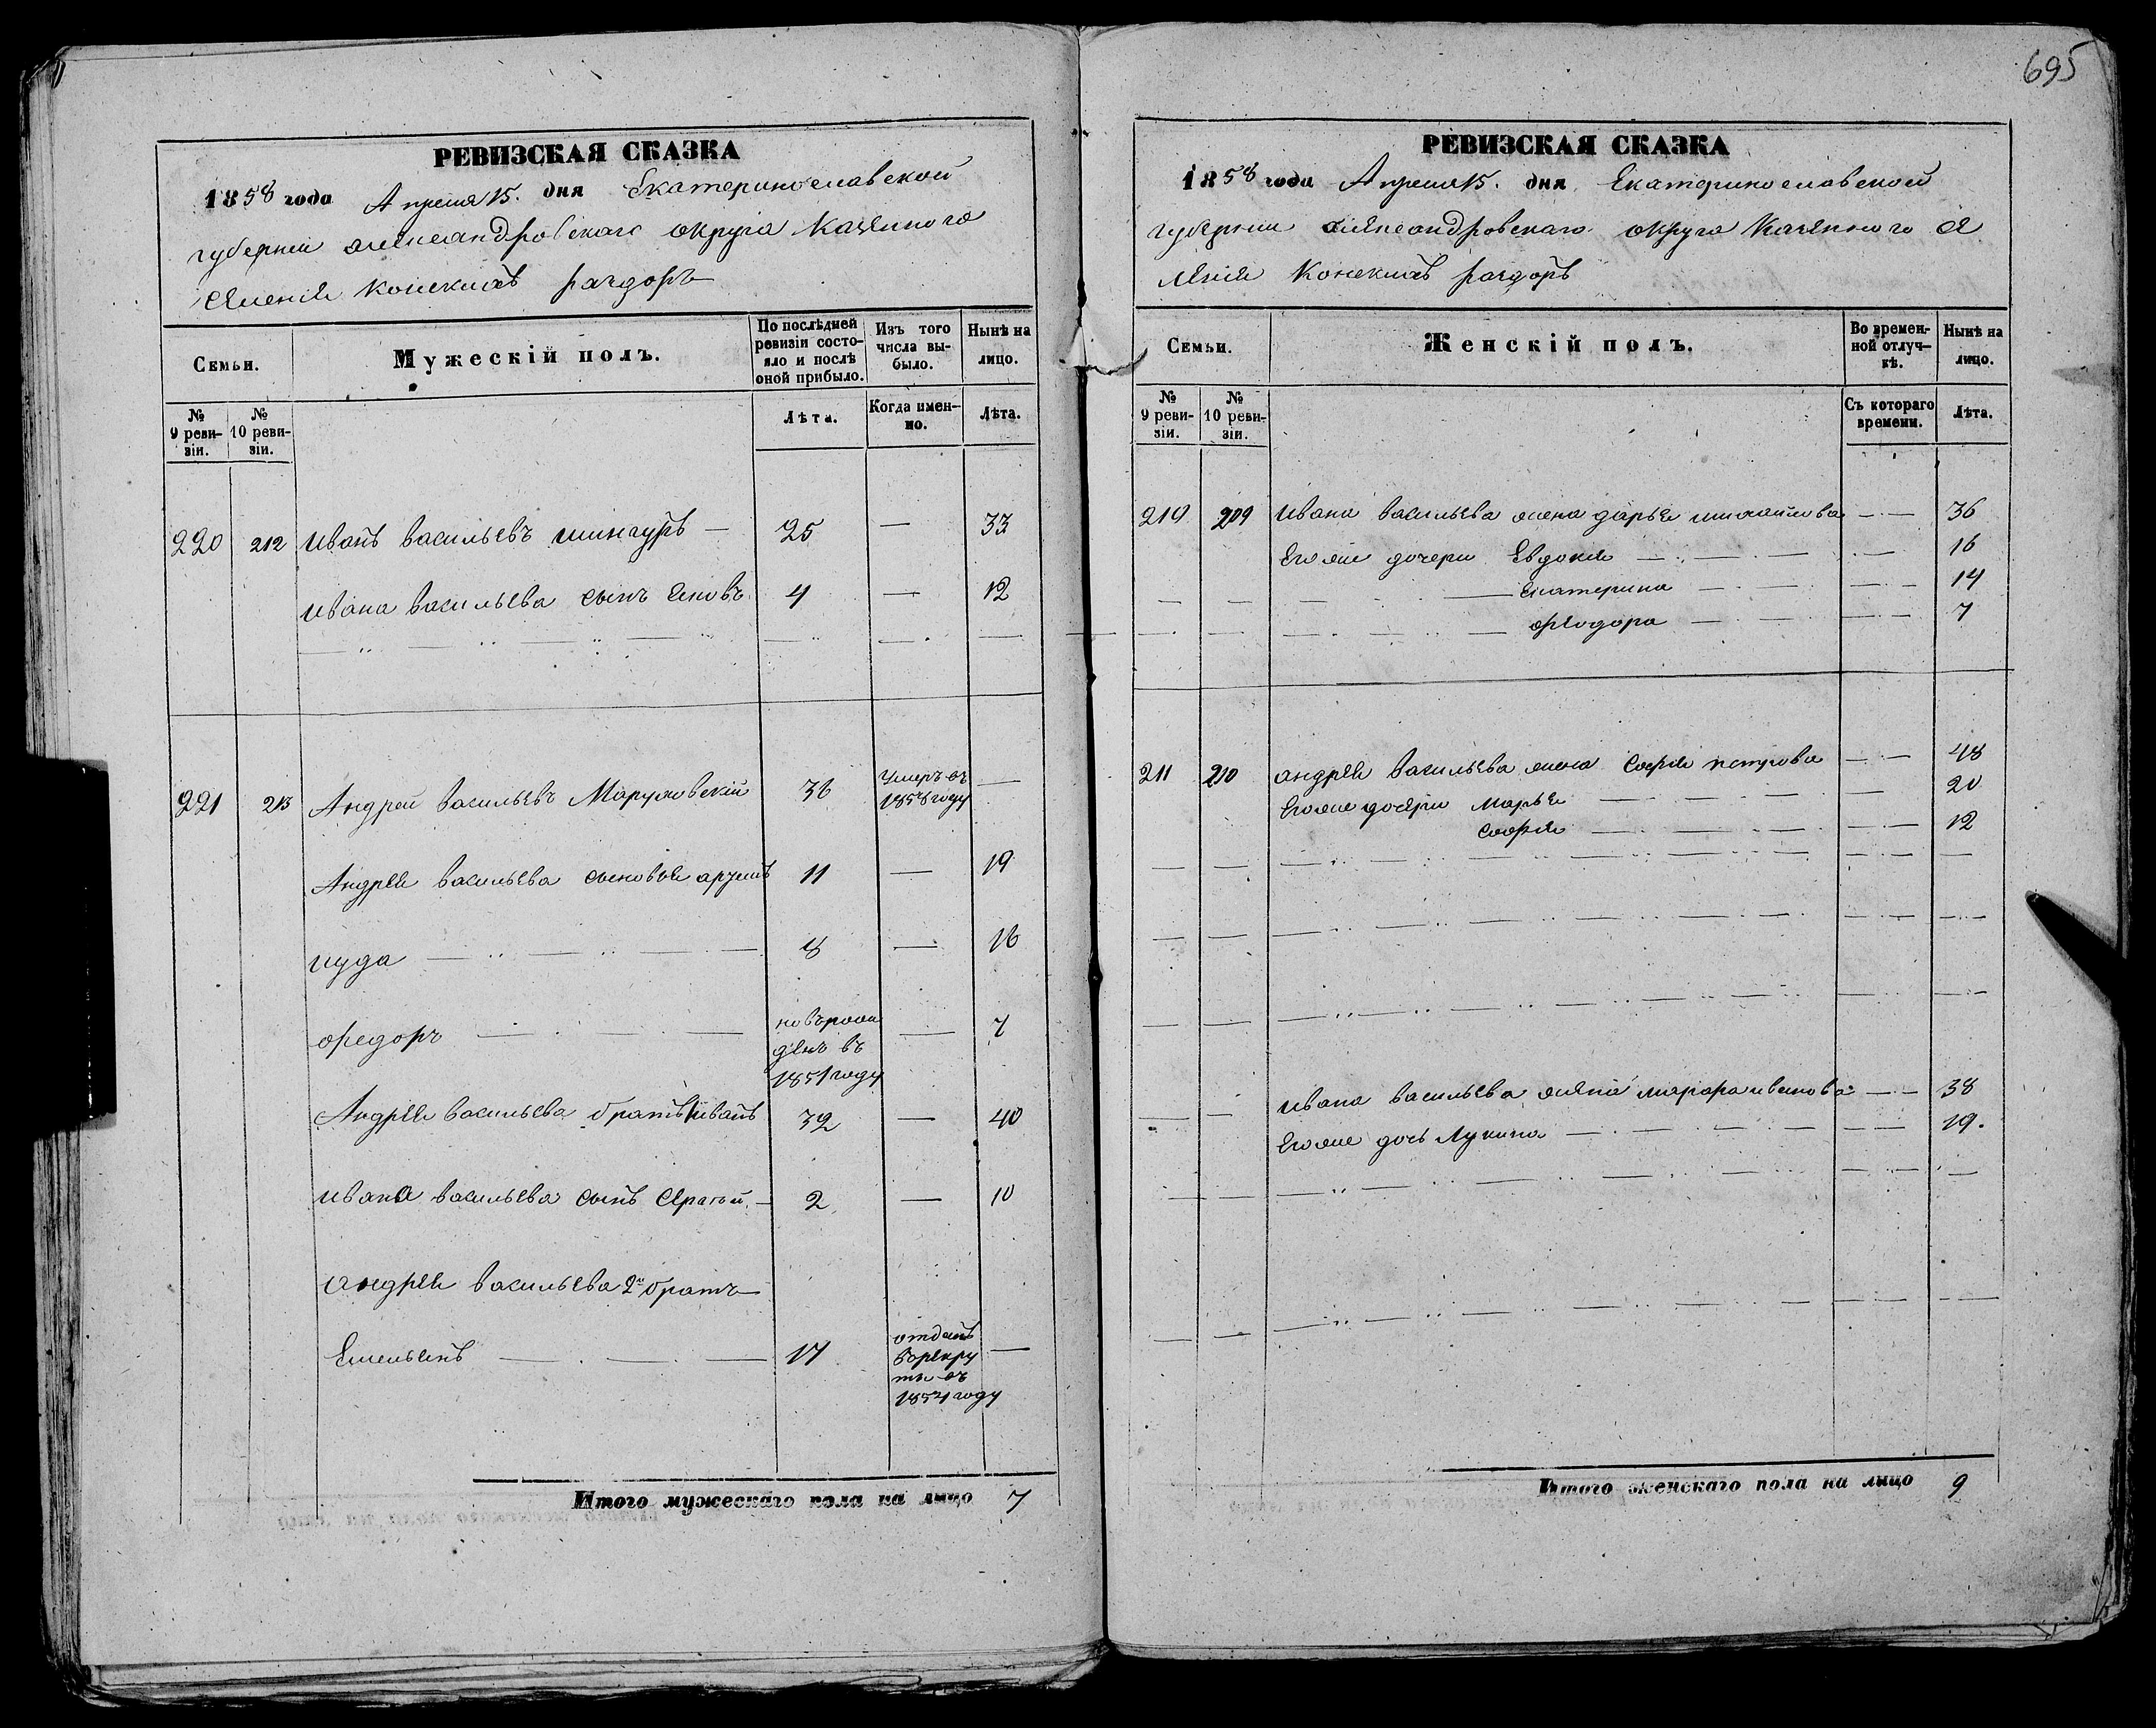 695
РЕВИЗСКАЯ СКАЗКА
1858 года Апреля 15. дня Екатеринославской
губернии Александровского округа Казенного
Селенія Конскихъ раздоръ
Семьи.
Мужескій полъ.
По послѣдней ревизіи состояло и послѣ оной прибыло.
Изъ того числа выбыло.
Нынѣ на лицо.
№ 9 ревизіи.
№ 10 ревизіи.
Лѣта.
Когда именно.
Лѣта.
220 212 Иванъ Васильевъ — 25 — 33
Ивана Васильева сынъ Яковъ 4 — 12
221 213 Андрей Васильевъ 36 Умеръ въ 1858 году —
Андрея Васильева сыновья 11 — 19
8 — 16
Федоръ новърож денъ въ 1851 году — 7
Андрея Васильева братъ Иванъ 32 — 40
Ивана Васильева сынъ Сергѣй 2 — 10
Андрея Васильева 2й братъ
Емельянъ 17 отданъ в рекру ты въ 1854 году —
Итого мужескаго пола на лицо 7
РЕВИЗСКАЯ СКАЗКА
1858 года Апреля 15. дня Екатеринославской
губернии Александровскаго округа Казенного Се
ленія Конскихъ раздоръ
Семьи.
Женскій полъ.
Во временной отлучкѣ.
Нынѣ на лицо.
№ 9 ревизіи.
№ 10 ревизіи.
Съ котораго времени.
Лѣта.
219 209 Ивана Васильева жена Дарья Михайлова — 36
Егоже дочери Евдокія — 16
Екатерина — 14
Феодора — 7
211 210 Андрея Васильева жена Софія Петрова — 48
Егоже дочери Марья — 20
Софія — 12
Ивана Васильева жена Марфа Иванова — 38
Егоже дочь — 19.
Итого женскаго пола на лицо 9